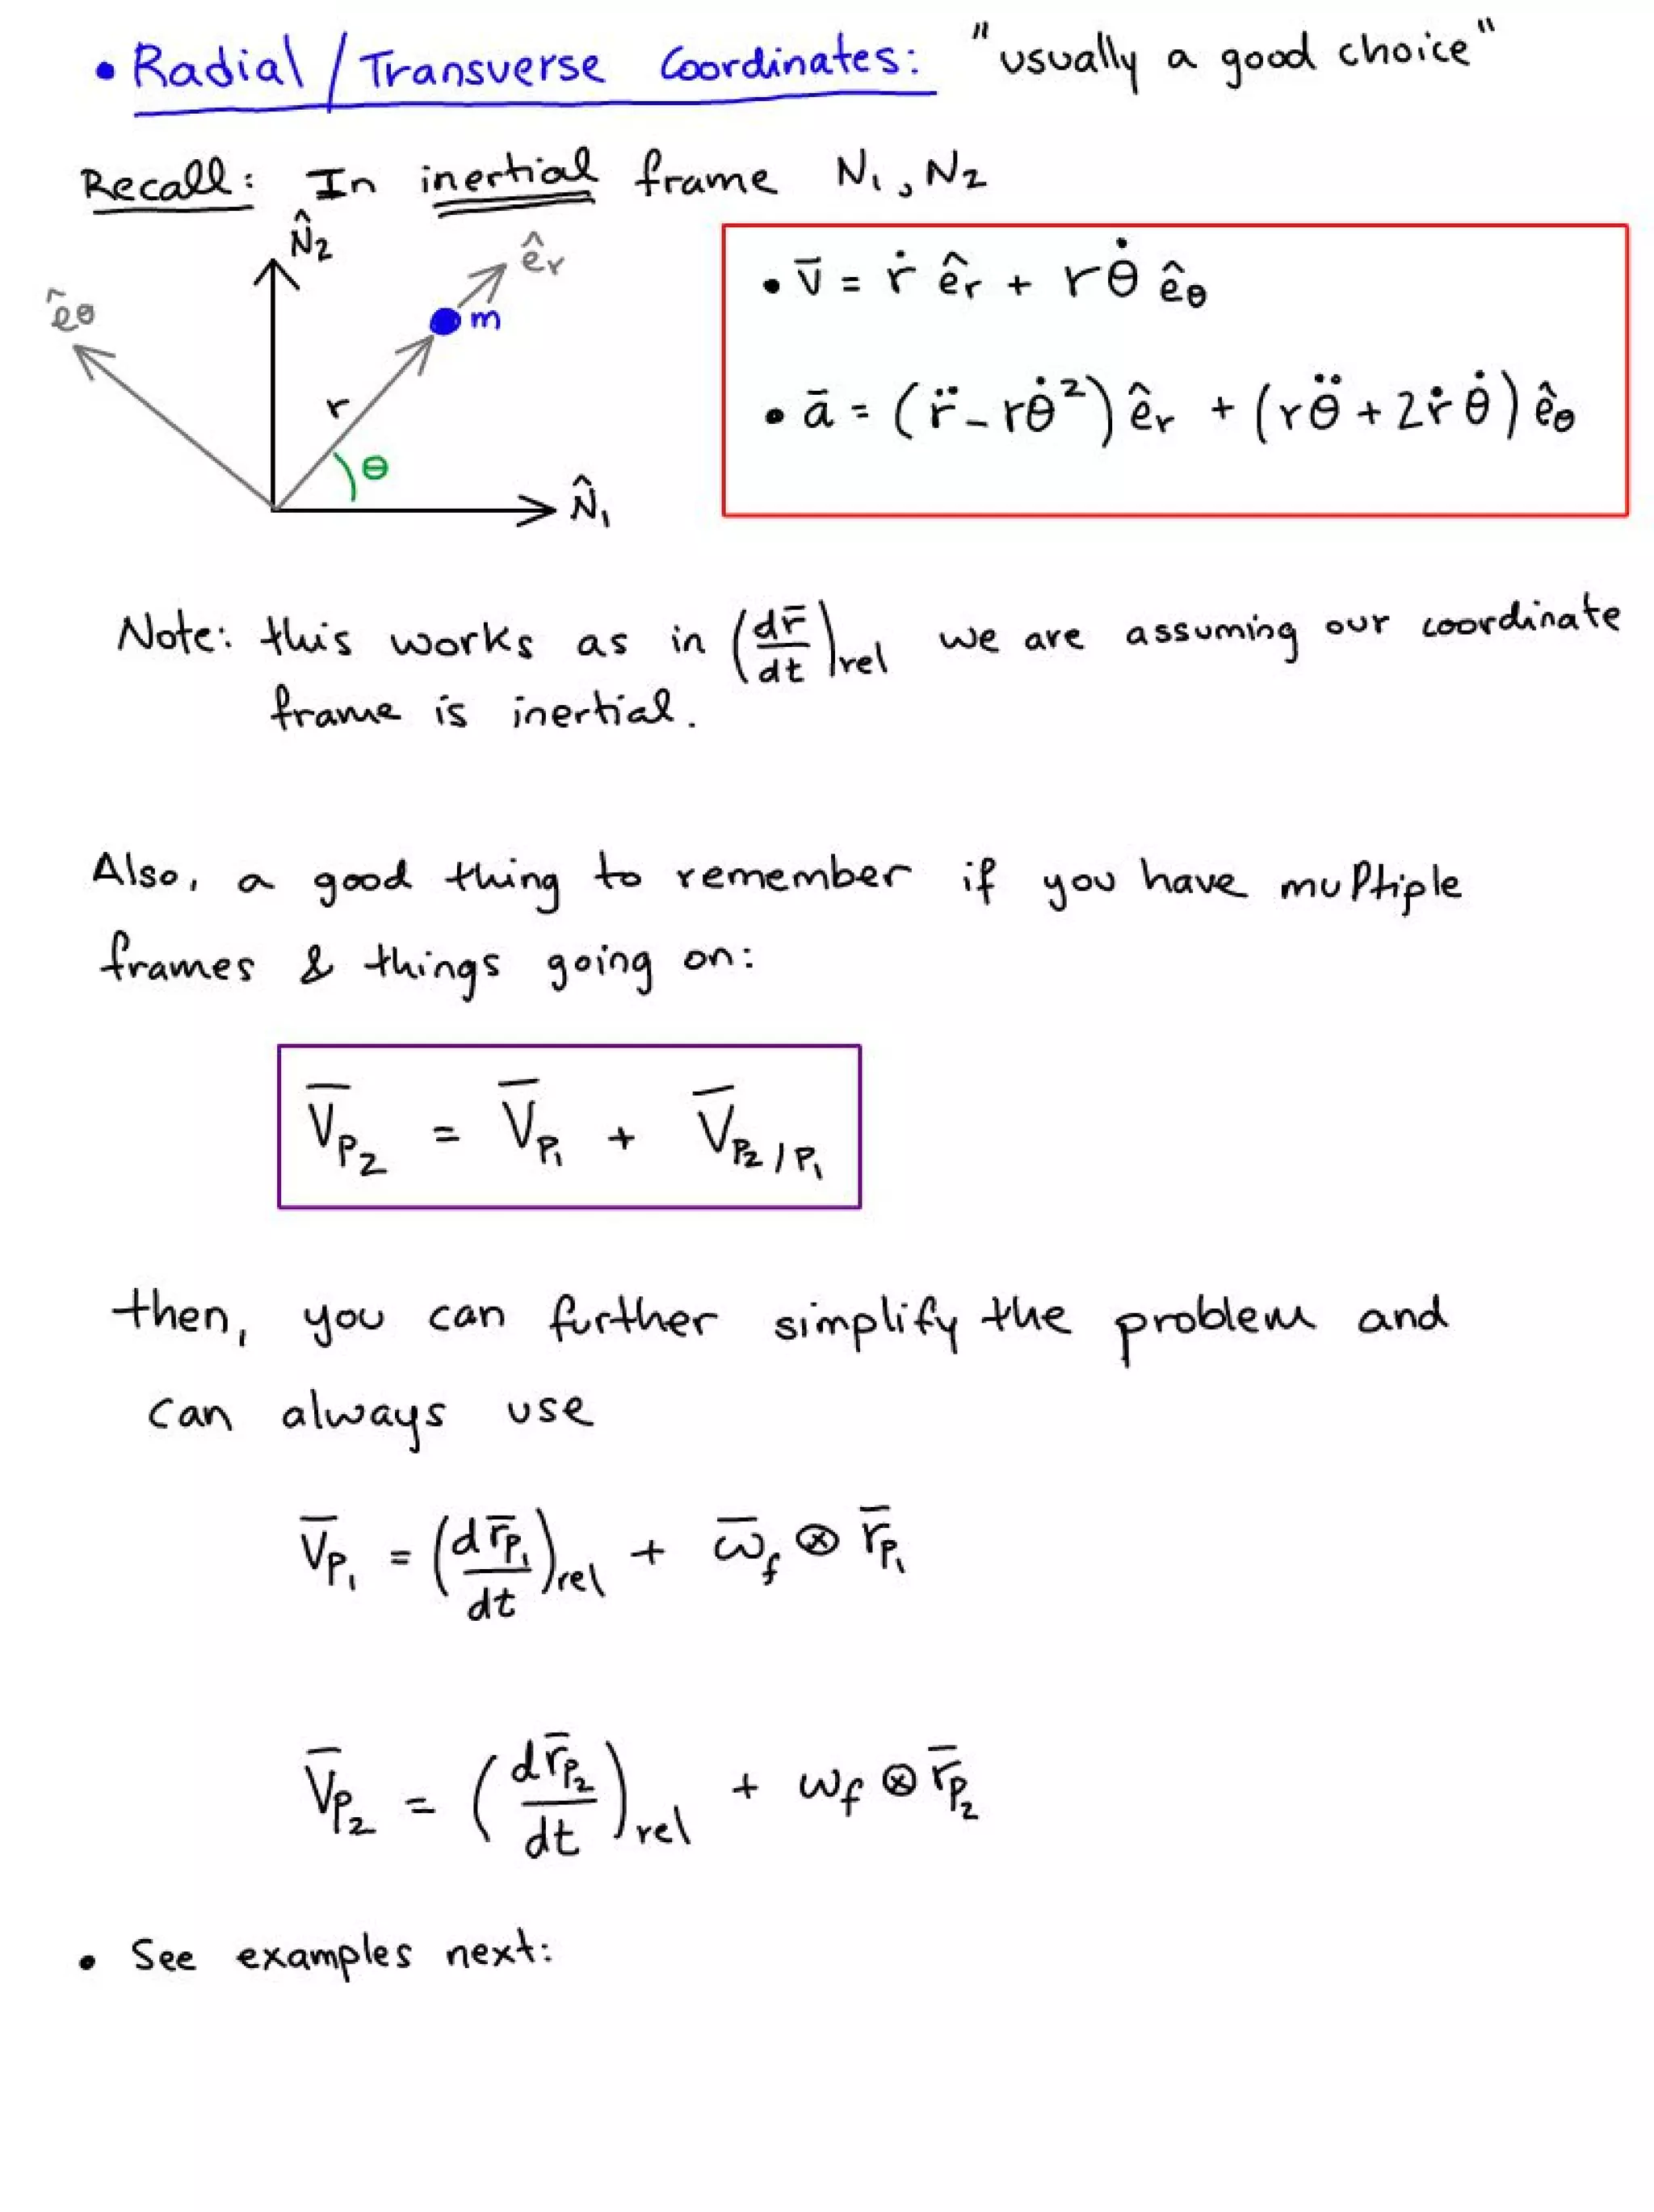 • Radial / Transverse Coordinates: "usually a good choice"
Recall: In inertial frame N₁, N₂
N̂₂
ê_r
ê_θ
m
r
θ
N̂₁
• v̄ = ṙ ê_r + rθ̇ ê_θ
• ā = (r̈ - rθ̇²) ê_r + (rθ̈ + 2ṙθ̇) ê_θ
Note: this works as in (dr̄/dt)rel we are assuming our coordinate
frame is inertial.
Also, a good thing to remember if you have multiple
frames & things going on:
V̄_P₂ = V̄_P₁ + V̄_P₂/P₁
then, you can further simplify the problem and
can always use
V̄_P₁ = (dr̄_P₁/dt)rel + ω̄_f ⊗ r̄_P₁
V̄_P₂ = (dr̄_P₂/dt)rel + ω_f ⊗ r̄_P₂
• See examples next: